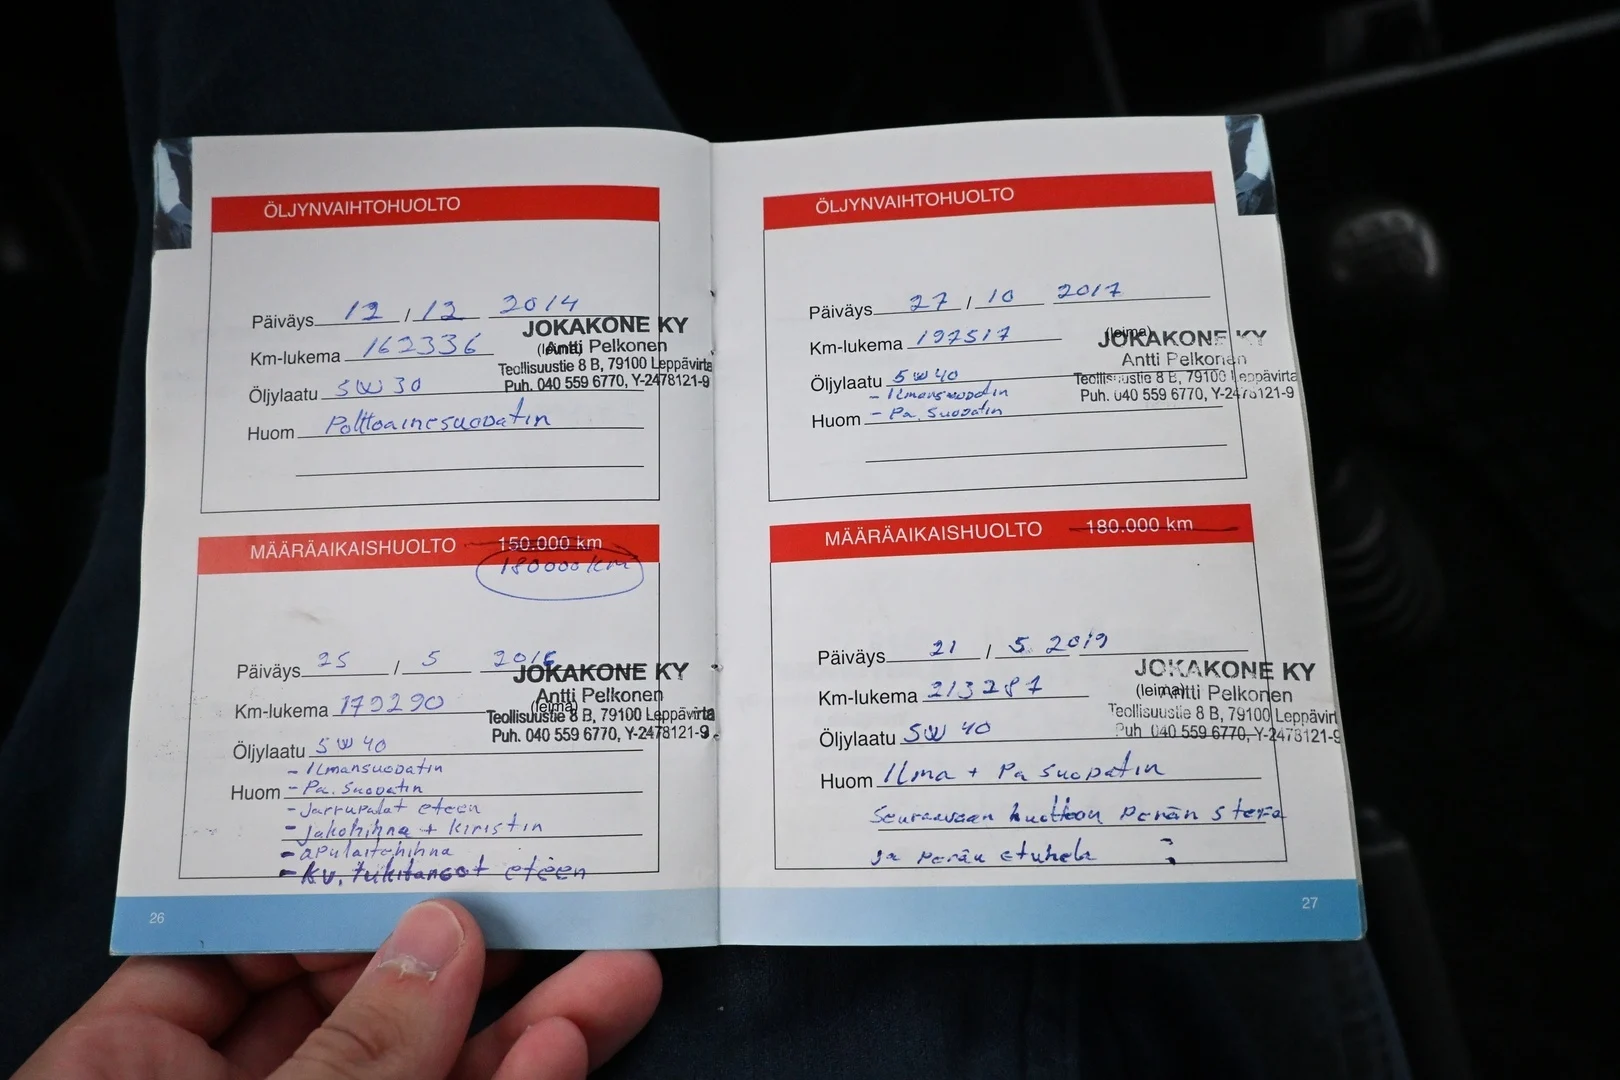 ÖLJYNVAIHTOHUOLTO
Päiväys 12 / 12 2014
JOKAKONE KY
Km-lukema 162336
(leima) Antti Pelkonen
Teollisuustie 8 B, 79100 Leppävirta
Öljylaatu 5W30
Puh. 040 559 6770, Y-2478121-9
Huom Polttoainesuodatin
MÄÄRÄAIKAISHUOLTO 150.000 km
180000 km
Päiväys 25 / 5 2016
JOKAKONE KY
Antti Pelkonen
Km-lukema 179290
(leima)
Teollisuustie 8 B, 79100 Leppävirta
Puh. 040 559 6770, Y-2478121-9
Öljylaatu 5W40
- Ilmansuodatin
Huom - Pa. Suodatin
- Jarrupalat eteen
- Jakohihna + kiristin
- apulaitehihna
- KV. tukitangot eteen
26
ÖLJYNVAIHTOHUOLTO
Päiväys 27 / 10 2017
Km-lukema 197517
(leima)
JOKAKONE KY
Antti Pelkonen
Öljylaatu 5W40
Teollisuustie 8 B, 79100 Leppävirta
- Ilmansuodatin
Puh. 040 559 6770, Y-2478121-9
Huom - Pa. Suodatin
MÄÄRÄAIKAISHUOLTO 180.000 km
Päiväys 21 / 5 2019
JOKAKONE KY
Km-lukema 213287
(leima) Antti Pelkonen
Teollisuustie 8 B, 79100 Leppävirt
Öljylaatu 5W40
Puh 040 559 6770, Y-2478121-9
Huom Ilma + Pa suodatin
Seuraavaan huoltoon Perän stefa
ja Perän etuhela
27